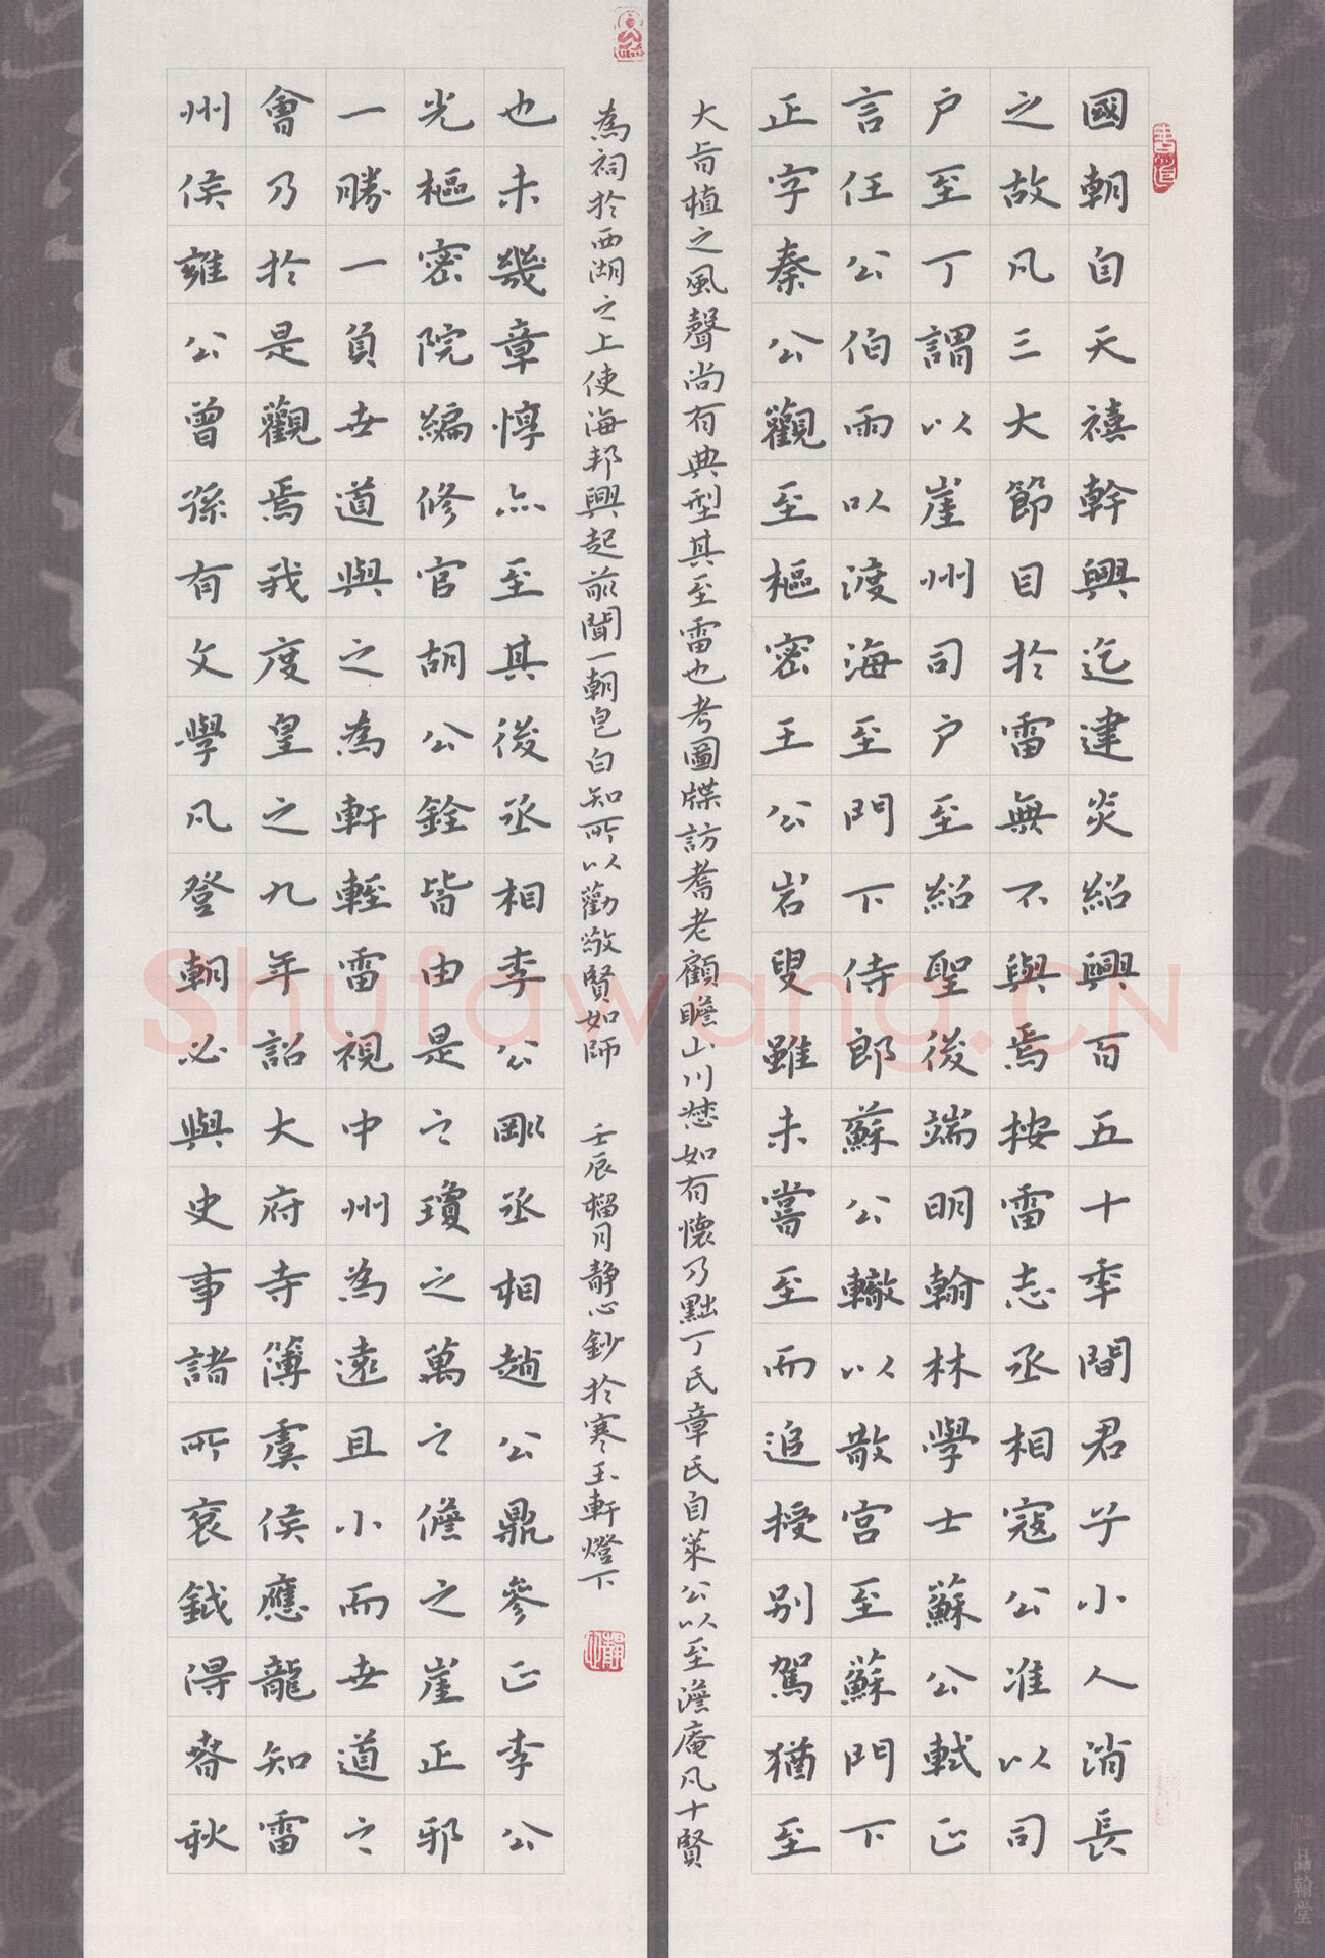 國朝自天禧幹興迄建炎紹興百五十年間君子小人消長
之故凡三大節目於雷無不與焉按雷志丞相寇公准以司
戶至丁謂以崖州司戶至紹聖後端明翰林學士蘇公軾正
言任公伯雨以渡海至門下侍郎蘇公轍以散宮至蘇門下
正字秦公觀至樞密王公岩叟雖未嘗至而追授別駕猶至
也未幾章惇亦至其後丞相李公剛丞相趙公鼎參正李公
光樞密院編修官胡公銓皆由是之瓊之萬之儋之崖正邪
一勝一負世道與之為軒輊雷視中州為遠且小而世道之
會乃於是觀焉我度皇之九年詔大府寺簿虞侯應龍知雷
州侯雍公曾孫有文學凡登朝必與史事諸所裒鉞得春秋
大旨植之風聲尚有典型其至雷也考圖牒訪耆老顧瞻山川如有懷乃黜丁氏章氏自萊公以至澹庵凡十賢
為祠於西湖之上使海邦興起前聞一朝皂白知所以勸敬賢如師 壬辰榴月靜心鈔於寒玉軒燈下
品翰堂
Shufawang.CN